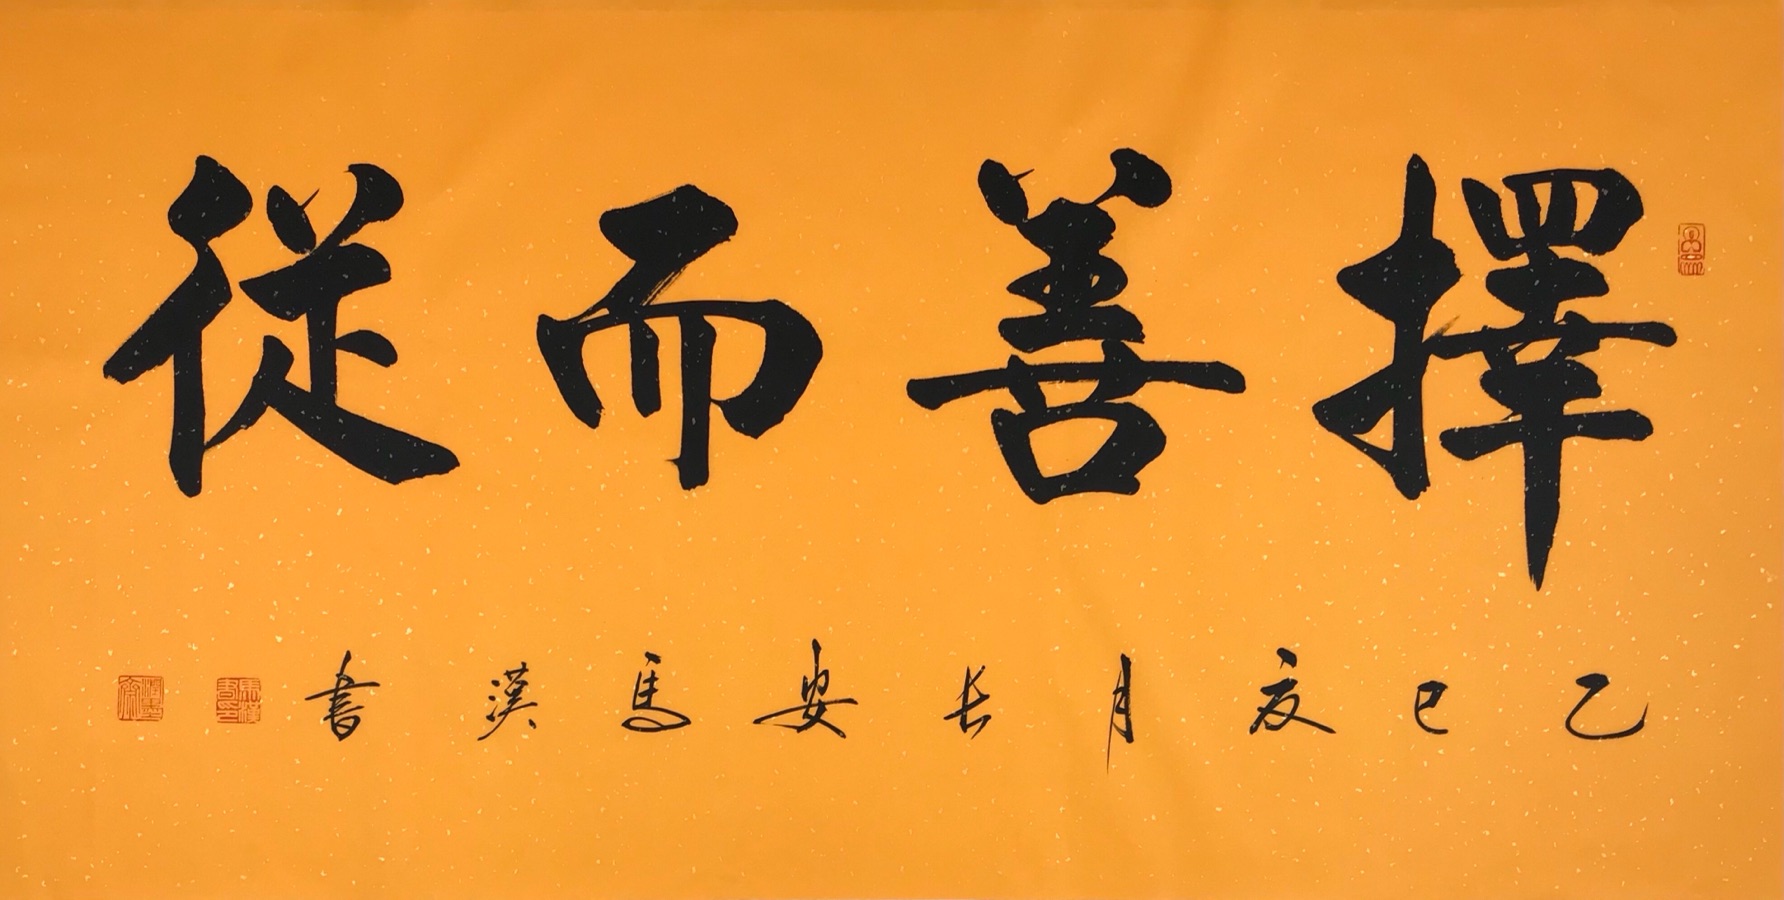 擇善而從
乙巳夏月長安馬漢書